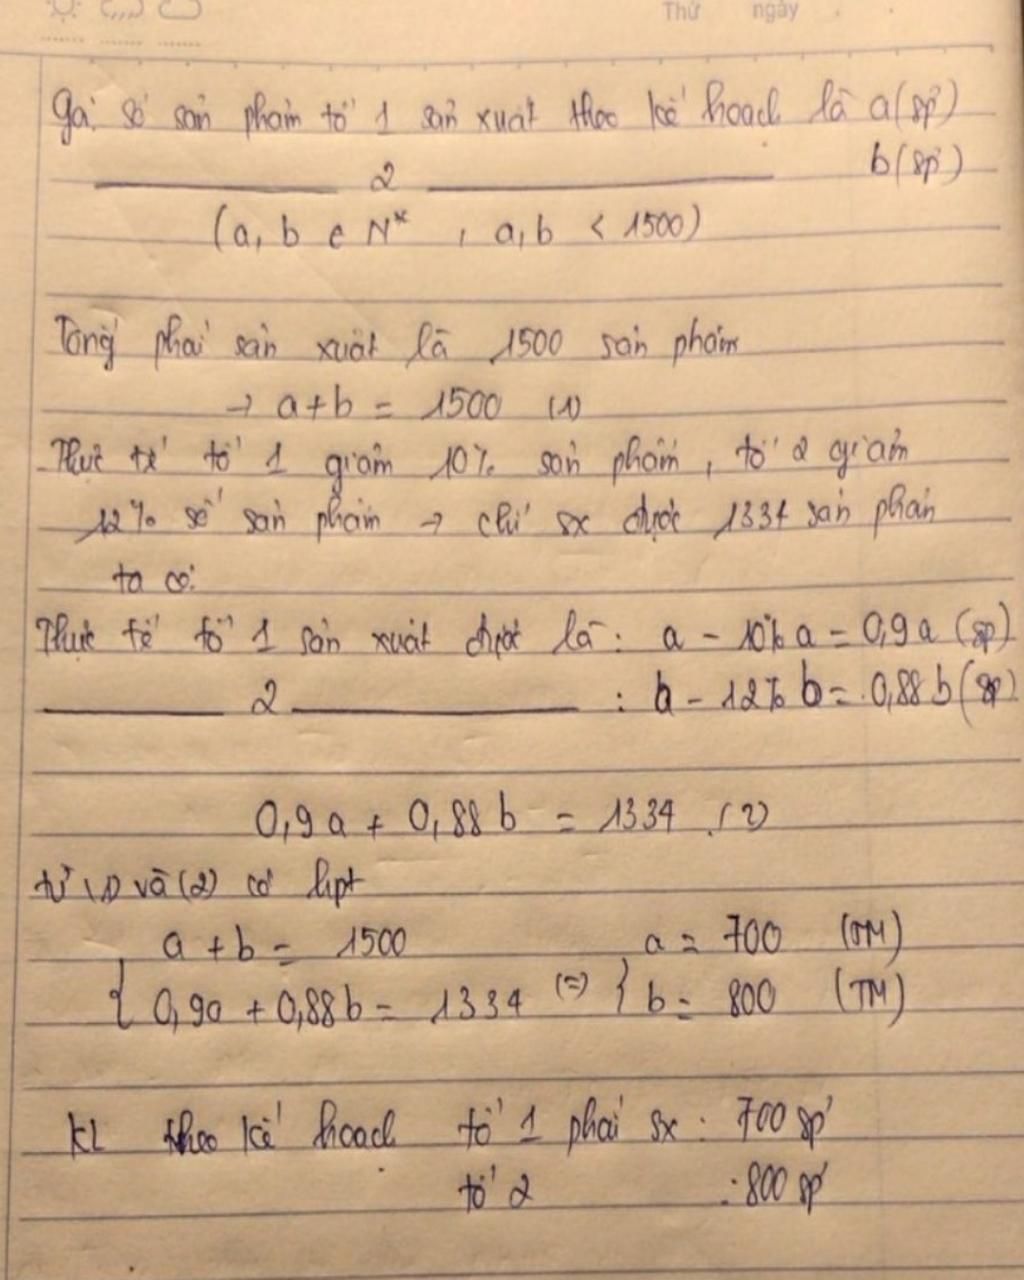 Thứ ngày
Gọi số sản phẩm tổ 1 sản xuất theo kế hoạch là a (sp)
2 b (sp)
(a, b ∈ N* , a, b < 1500)
Tổng phải sản xuất là 1500 sản phẩm
→ a + b = 1500 (1)
Thực tế tổ 1 giảm 10% sản phẩm, tổ 2 giảm
12% số sản phẩm → chỉ sx được 1334 sản phẩm
ta có:
Thực tế tổ 1 sản xuất được là : a - 10% a = 0,9 a (sp)
2 : b - 12% b = 0,88 b (sp)
0,9 a + 0,88 b = 1334 (2)
từ (1) và (2) có hpt
a + b = 1500 a = 700 (TM)
{ 0,9a + 0,88 b = 1334 (=) { b = 800 (TM)
KL theo kế hoạch tổ 1 phải sx : 700 sp
tổ 2 : 800 sp